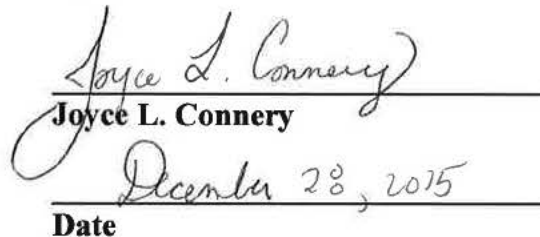 Joyce L. Connery
Joyce L. Connery
December 28, 2015
Date